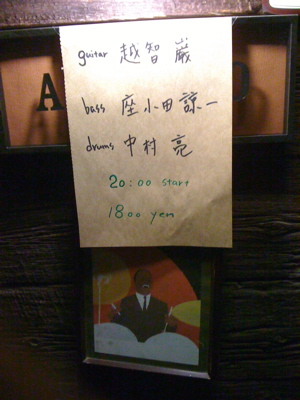 guitar 越智 巌
bass 座小田 諒一
drums 中村 亮
20:00 start
1800 yen